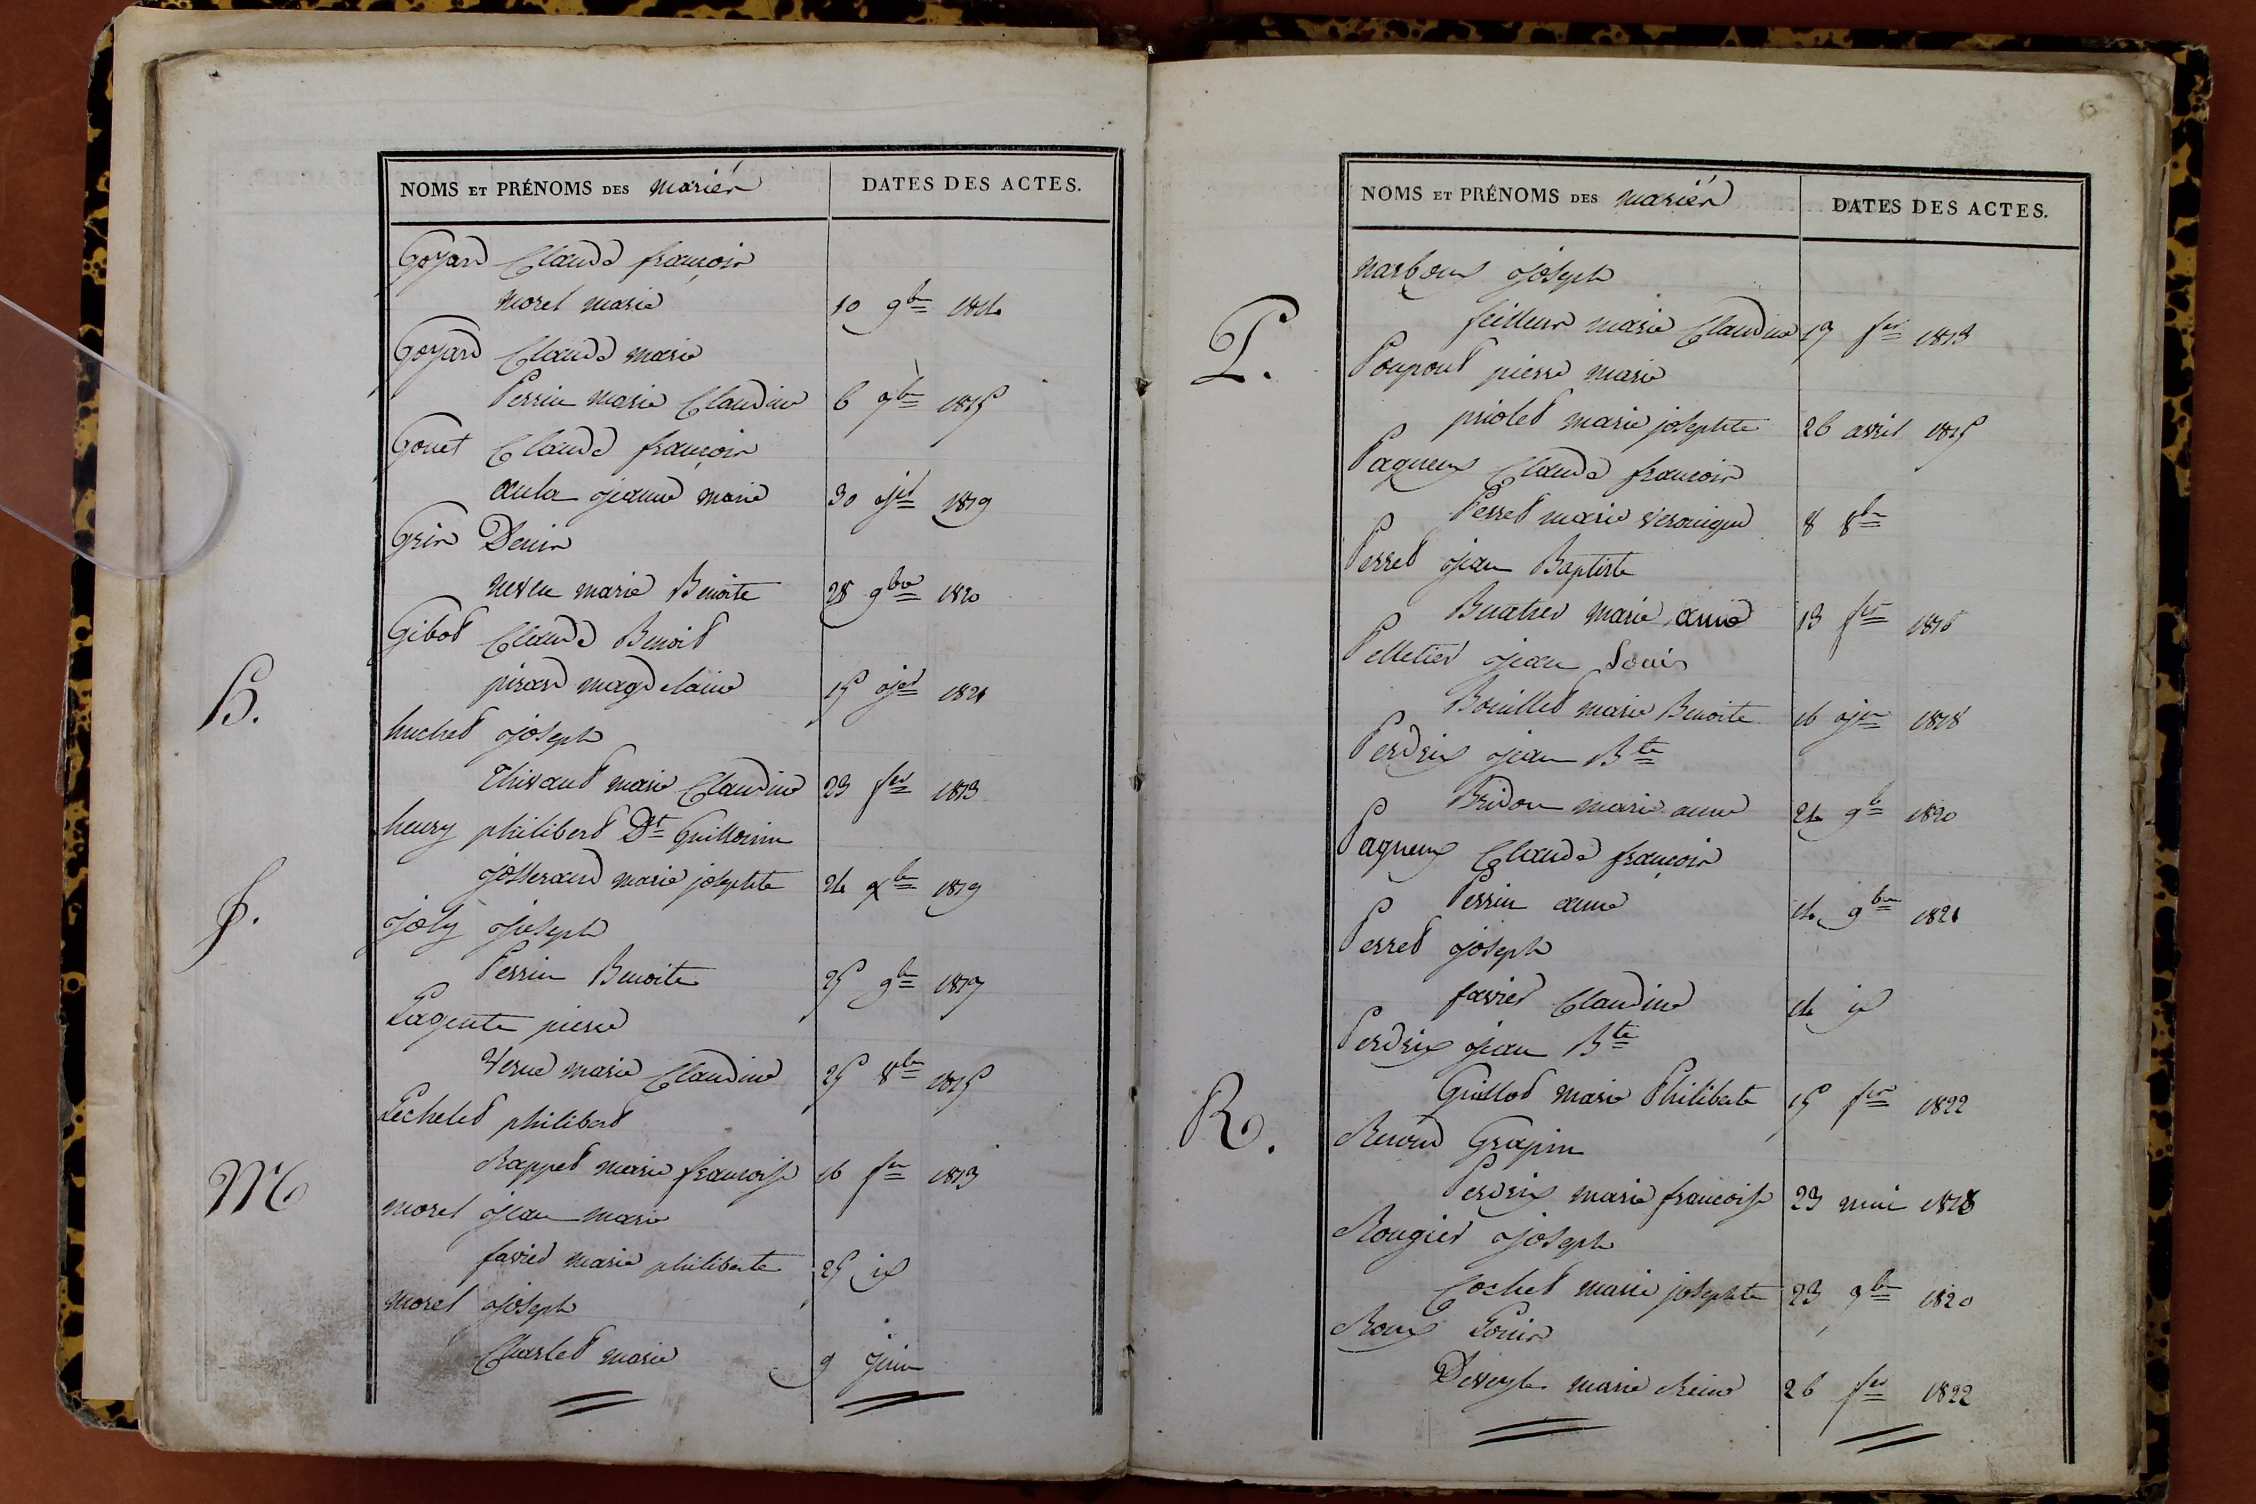 NOMS ET PRÉNOMS DES mariés DATES DES ACTES.
Goyard Claude françois
morel marie 10 9bre 1814
Goyard Claude marie
Perrin marie Claudine 6 7bre 1815
Gouet Claude françois
aula jeanne marie 30 jet 1819
Grin Denis
neveu marie Benoite 28 9bre 1820
Gibot Claude Benoit
pirard magdelaine 15 jet 1821
H.
huchet joseph
Thivaud marie Claudine 23 fer 1813
henry philibert Dt Guillemin
josserand marie josephte 24 xbre 1819
J.
joly joseph
Perrin Benoite 25 9bre 1817
Lagoute pierre
Verne marie Claudine 25 8bre 1815
Lechelet philibert
Rappet marie françoise 16 fer 1813
M
morel jean marie
favier marie philiberte 25 id
morel joseph
Charlet marie 9 juin
NOMS ET PRÉNOMS DES mariés DATES DES ACTES.
narboux joseph
marie Claudine 17 fer 1813
P.
Poupout pierre marie
priolet marie josephte 26 avril 1815
Pagneux Claude françois
Perret marie veronique 8 8bre
Perret jean Baptiste
Buatier marie anne 13 fer 1816
Pelletier jean Louis
Bouillet marie Benoite 16 jer 1818
Perdrix jean Bte
Bridon marie anne 24 9bre 1820
Pagneux Claude françois
Perrin anne 14 9bre 1821
Perret joseph
favier Claudine 14 id
Perdrix jean Bte
Guillot marie Philiberte 15 fer 1822
R.
Renoud Grapin
Perdrix marie françoise 23 mai 1818
Rougier joseph
Cochet marie josephte 23 9bre 1820
Roux Louis
Deveyle marie Reine 26 fer 1822